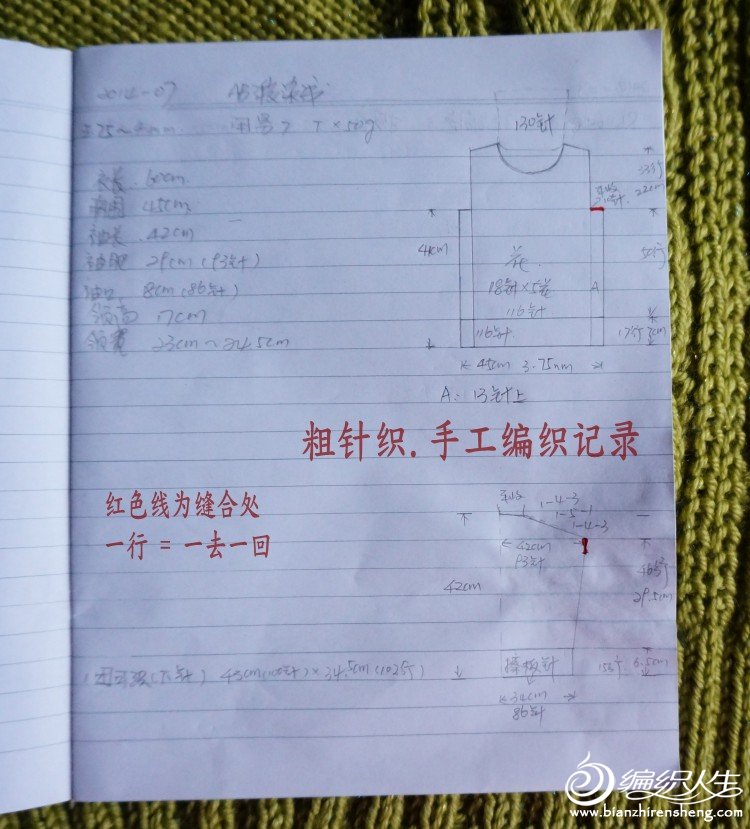 2014-07
3.75~4mm 闲易2 7×50g
衣长 60cm
胸围 45cm
袖长 42cm
袖肥 29cm(93针)
袖口 8cm(86针)
领高 7cm
领宽 23cm~24.5cm
130针
平收
33行
22cm
41cm
50行
花
18针×5花
A
116针
116针
17行 7cm
45cm 3.75mm
A: 13针上
粗针织.手工编织记录
红色线为缝合处
一行 = 一去一回
平收
1-4-3
1-5-1
1-4-3
42cm
93针
42cm
46行
29.5cm
(下针) 43cm(100针)×34.5cm(102行)
搓板针
15行 6.5cm
34cm
86针
编织人生
www.bianzhirensheng.com